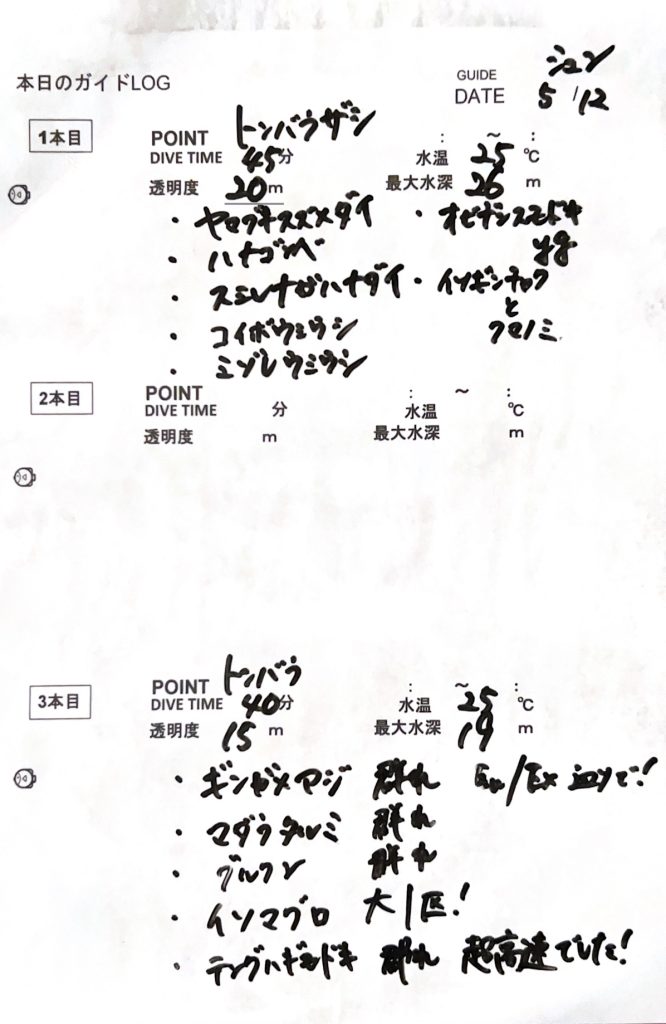 本日のガイドLOG
GUIDE シュン
DATE 5/12
1本目
POINT トンバラザシ : ～ :
DIVE TIME 45分 水温 25℃
透明度 20m 最大水深 26m
・ヤマブキスズメダイ ・オビテンスモドキ
・ハナゴンベ yg
・スミレナガハナダイ ・イソギンチャク
と
・コイボウミウシ クマノミ
・ミゾレウミウシ
2本目
POINT : ～ :
DIVE TIME 分 水温 ℃
透明度 m 最大水深 m
3本目
POINT トンバラ : ～ :
DIVE TIME 40分 水温 25℃
透明度 15m 最大水深 19m
・ギンガメアジ 群れ En/Ex 辺りで!
・マダラタルミ 群れ
・グルクン 群れ
・イソマグロ 大1匹!
・テングハギモドキ 群れ 超高速でした!